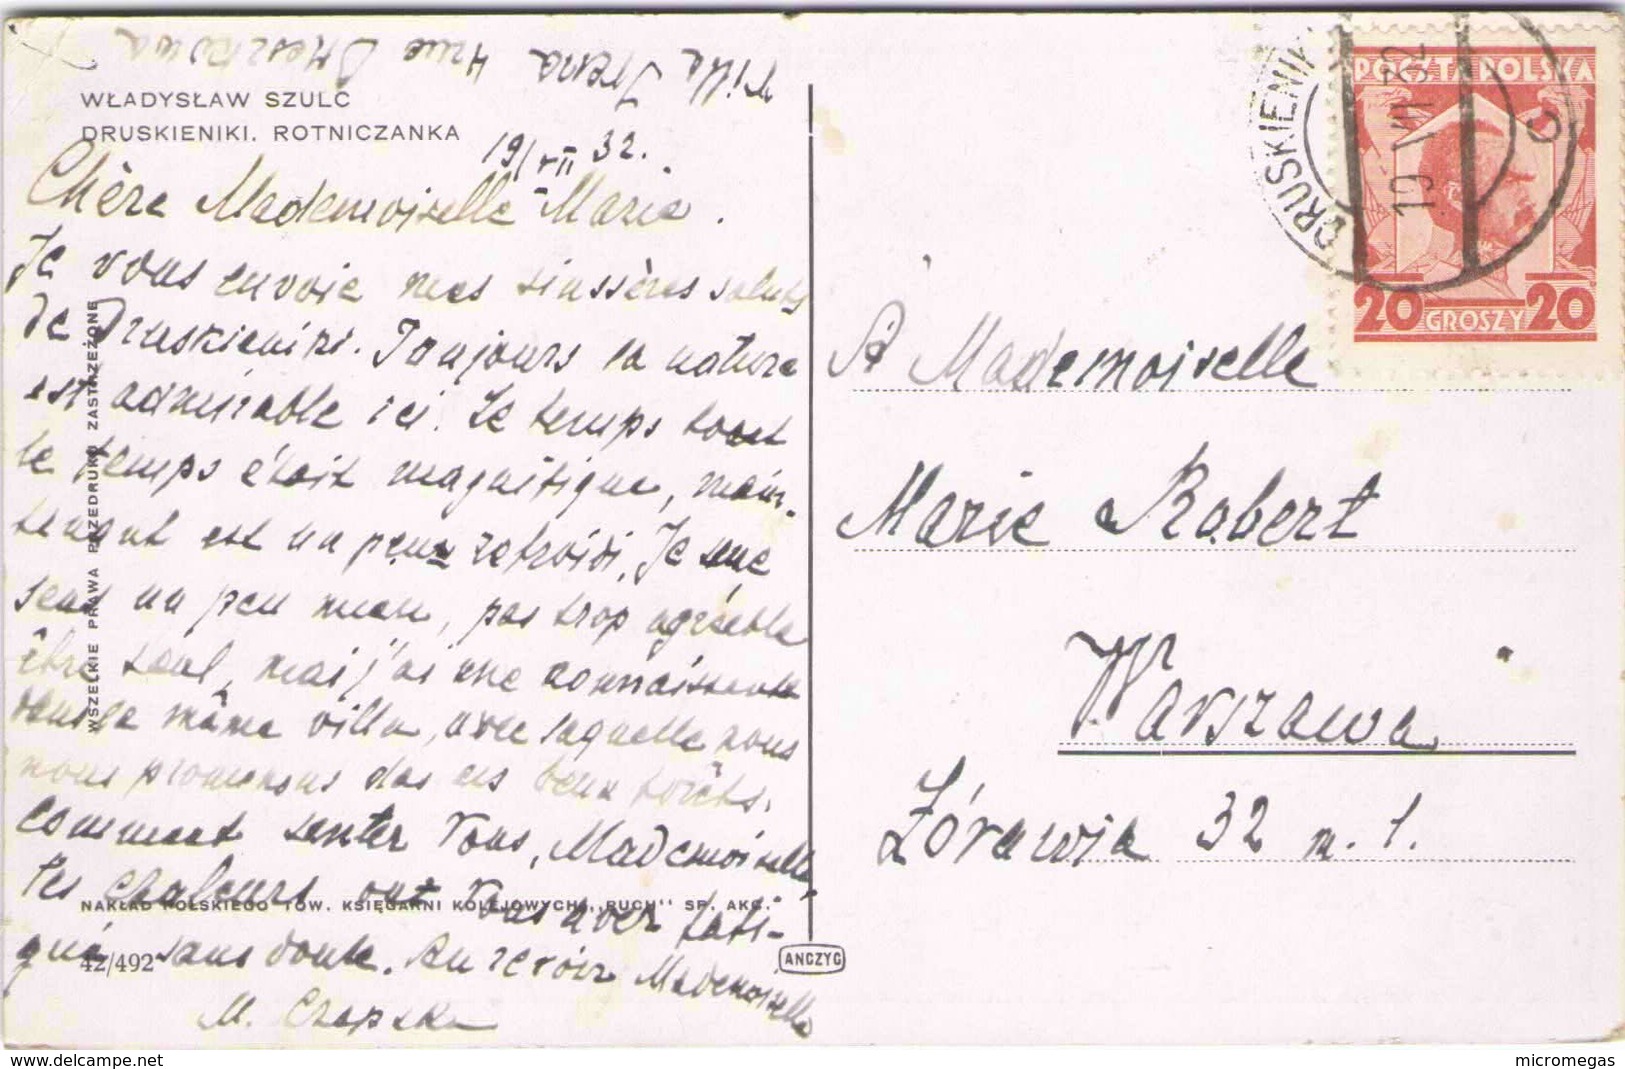 Willa Irena
WŁADYSŁAW SZULC
DRUSKIENIKI. ROTNICZANKA
19/VII 32.
Chère Mademoiselle Marie.
Je vous envoie mes sinssères saluts
de Druskieniki. Toujours la nature
est admirable ici. Le temps tout
le temps étoit magnifique, main-
tenant est un peu refroidi. Je me
sens un peu mieu, pas trop agréable
être seul, mais j'ai une connaissance
dans la même villa, avec laquelle nous
nous promenons das ces beux forêts.
Comment senter Vous, Mademoiselle,
les chaleurs ont Vous aver fati-
gué sans doute. Au revoir Mademoiselle
M. Czapska
WSZELKIE PRAWA PRZEDRUKU ZASTRZEŻONE
NAKŁAD POLSKIEGO TOW. KSIĘGARNI KOLEJOWYCH „RUCH" SP. AKC.
42/492
ANCZYC
POCZTA POLSKA
20 GROSZY 20
DRUSKIENIKI
19 VII 32
C
A Mademoiselle
Marie Robert
Warszawa
Żórawia 32 m. 1.
delcampe.net
micromegas